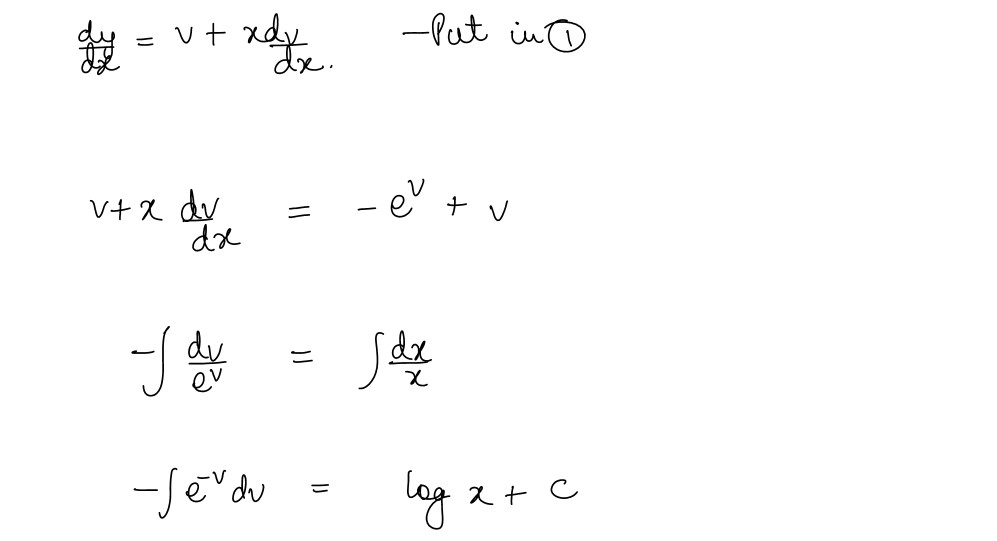 dy/dx = v + x dv/dx. - Put in ①
v + x dv/dx = - e^v + v
- ∫ dv/e^v = ∫ dx/x
- ∫ e^-v dv = log x + c